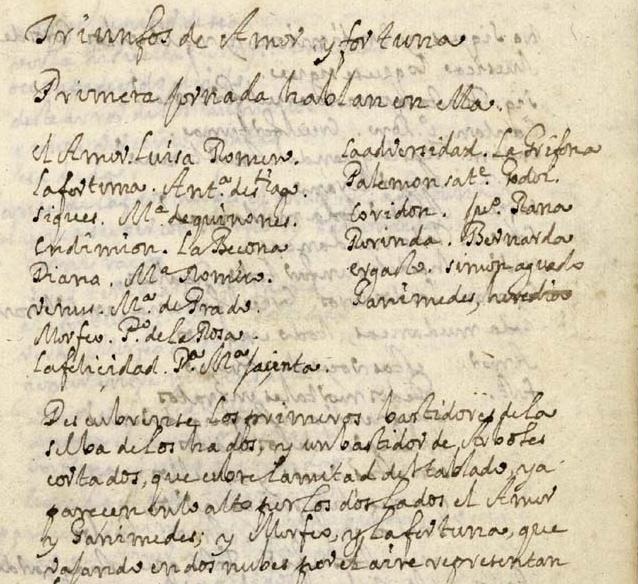 Triunfos de Amor y fortuna
Primera jornada hablan en ella.
el Amor. Luisa Romero.
la fortuna. Antª de stiago
siques. Mª de quinones.
endimion. La Becona
Diana. Mª Romero.
venus. Mª de Prado.
Morfeo. Pº de la Rosa.
la felicidad. Mª Jacinta.
La adversidad. La Grifona
Palemon
Coridon. Rana
Rorinda. Bernarda
ergasto. simon aguado
Ganimedes, heredioo
Descubrense los primeros bastidores de la
selba de los hados, y un bastidor de Arboles
cortados, que cubre la mitad del tablado, y a
parecen en lo alto por los dos lados el Amor
y Ganimedes; y Morfeo, y la fortuna, que
vajando en dos nubes por el aire representan